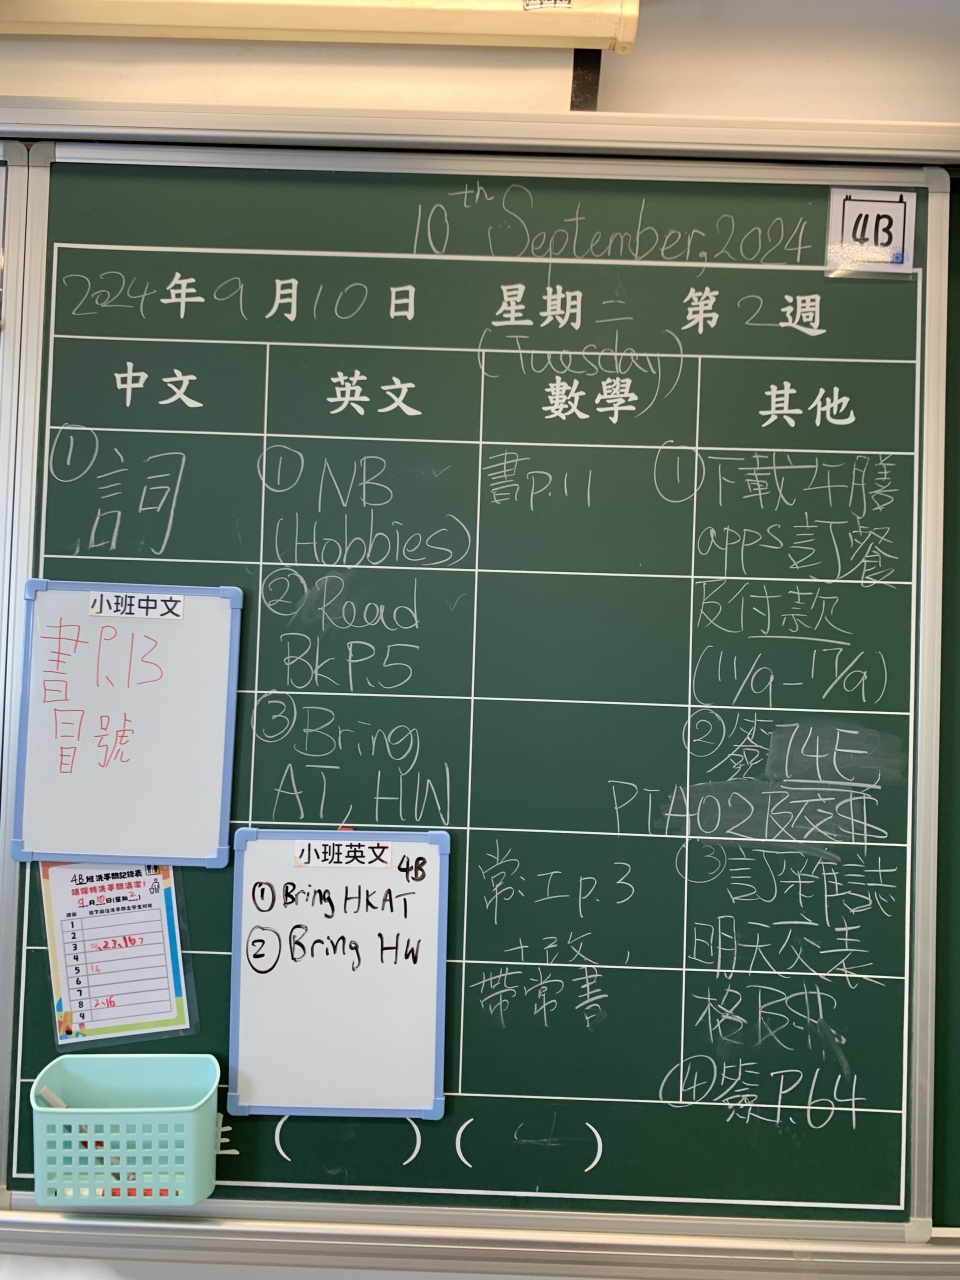 10th September, 2024
4B
2024年9月10日 星期二 第2週
(Tuesday)
中文 英文 數學 其他
① 詞
① NB
(Hobbies)
② Read
Bk P.5
③ Bring
AT, HW
書P.11
常江P.3
+改,
帶常書
① 下載午膳
apps訂餐
及付款
(11/9-17/9)
② 簽74E,
PTA02及交$
③ 訂雜誌
明天交表
格及$
④ 簽P.64
小班中文
書P.13
冒號
小班英文
4B
① Bring HKAT
② Bring HW
4B班洗手間記錄表
請保持洗手間清潔!
9月10日(星期2)
1
2
3 23, 16
4
5 16
6
7
8 2, 16
9
生 ( ) ( )